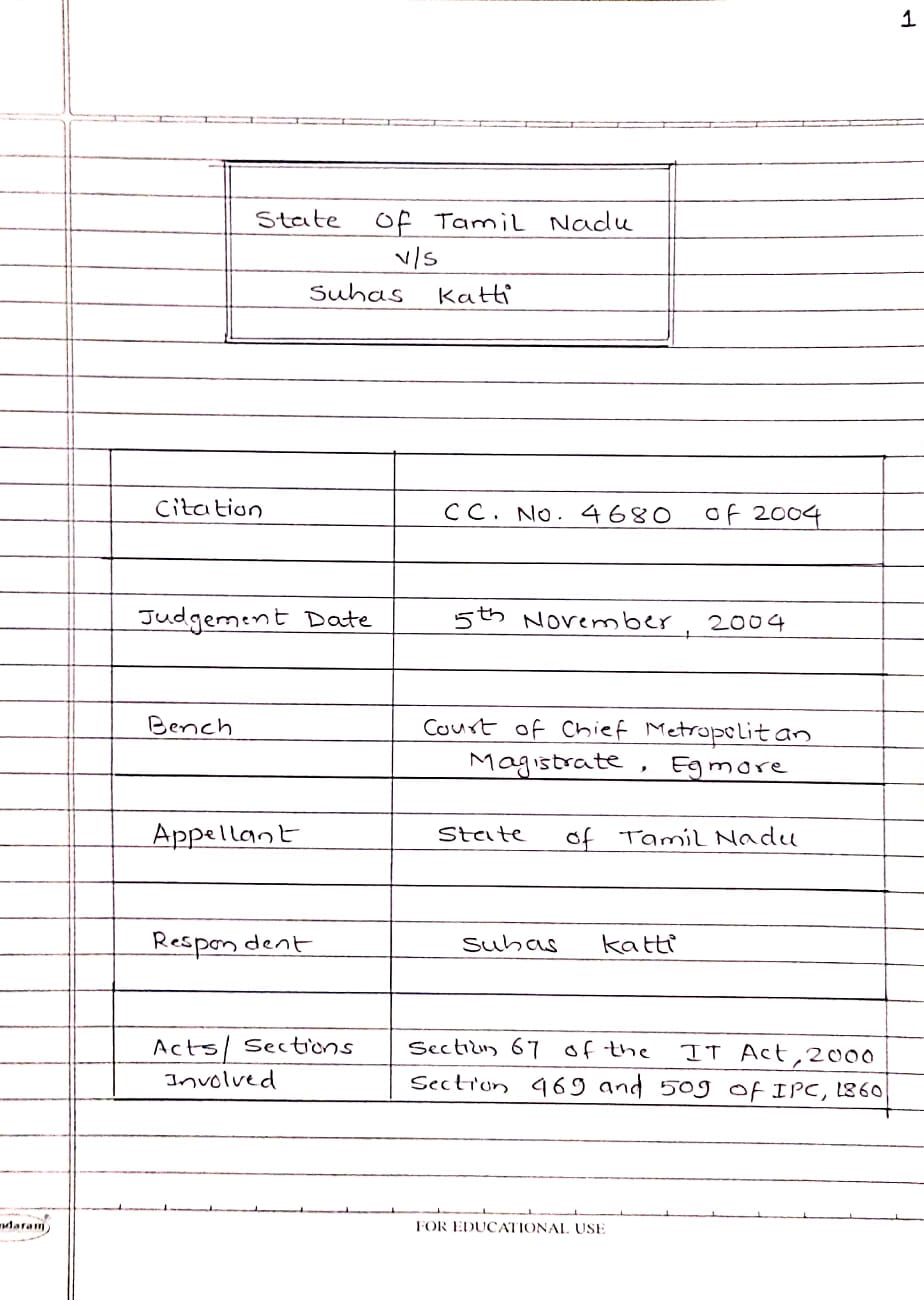 1
State Of Tamil Nadu
v/s
Suhas Katti
Citation CC. No. 4680 of 2004
Judgement Date 5th November, 2004
Bench Court of Chief Metropolitan
Magistrate, Egmore
Appellant State of Tamil Nadu
Respondent Suhas Katti
Acts/ Sections Section 67 of the IT Act, 2000
Involved Section 469 and 509 of IPC, 1860
FOR EDUCATIONAL USE